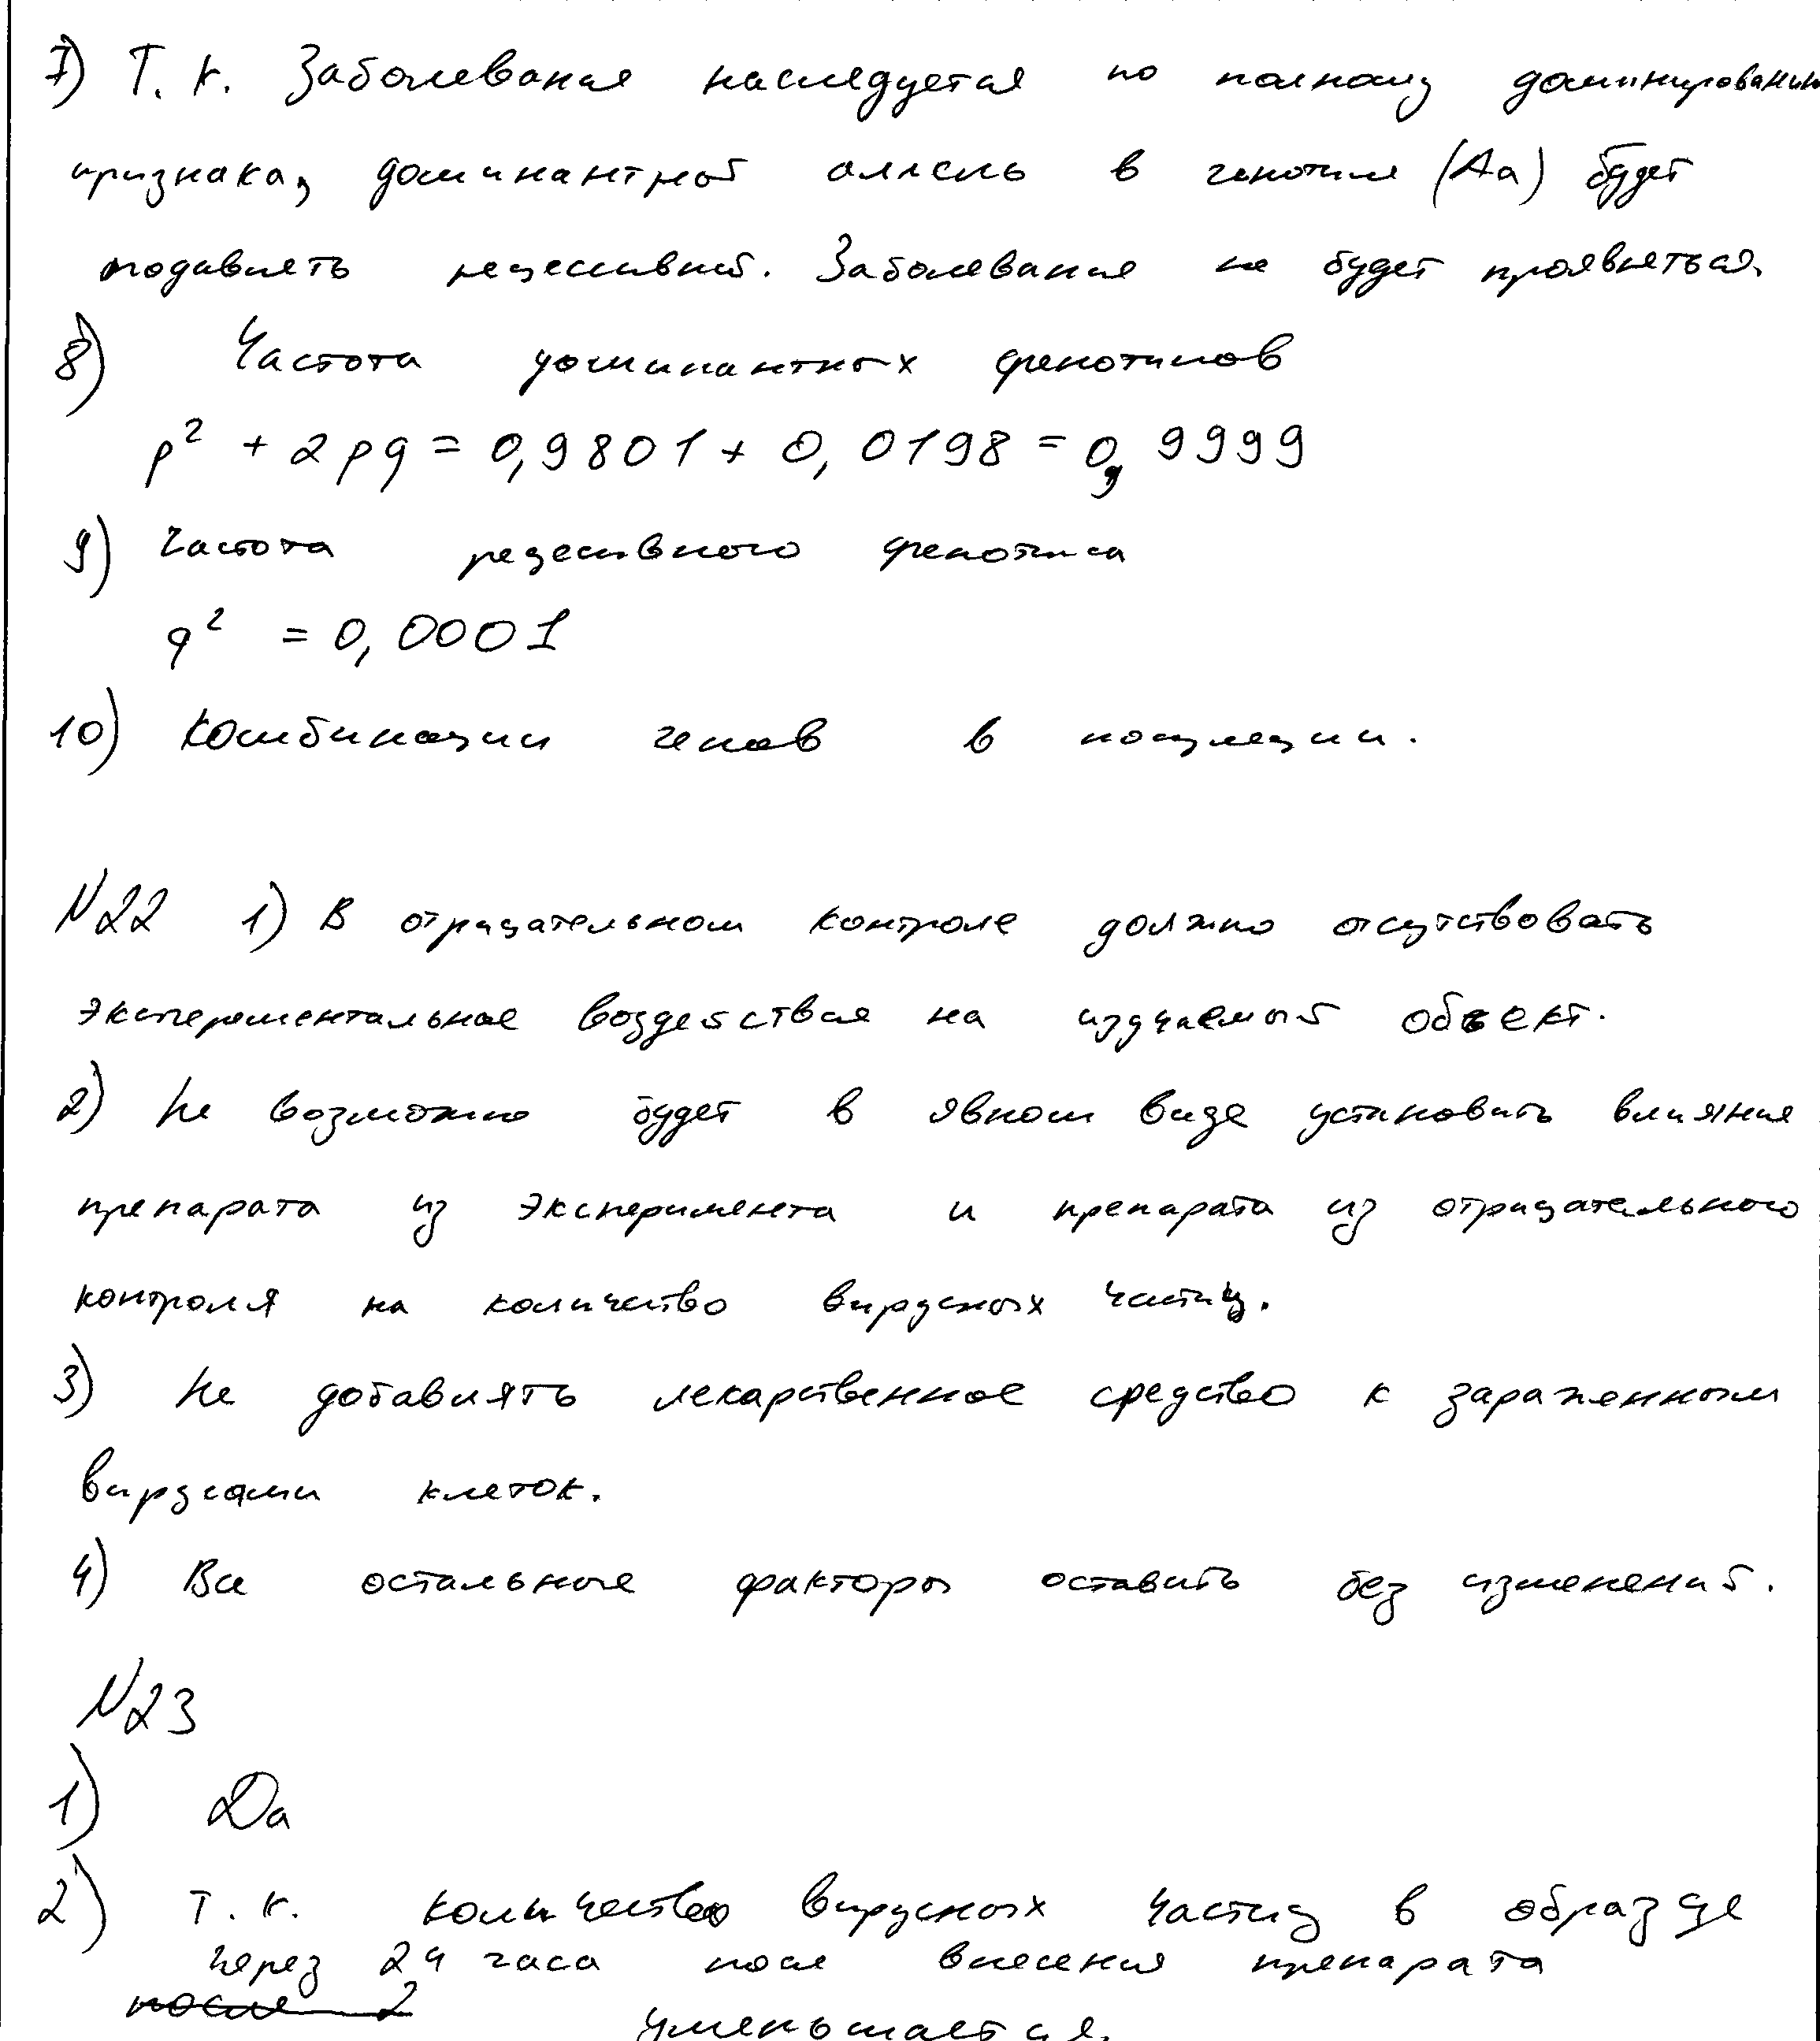 7) Т. к. Заболевание наследуется по полному доминированию
признака, доминантный аллель в генотипе (Аа) будет
подавлять рецессивный. Заболевание не будет проявляться.
8) Частота доминантных фенотипов
p² + 2pq = 0,9801 + 0,0198 = 0,9999
9) Частота рецесивного фенотипа
q² = 0,0001
10) Комбинации генов в популяции.
№22 1) В отрицательном контроле должно отсутствовать
экспериментальное воздействие на изучаемый объект.
2) Не возможно будет в явном виде установить влияние
препарата из эксперимента и препарата из отрицательного
контроля на количество вирусных частиц.
3) Не добавлять лекарственное средство к зараженным
вирусами клеток.
4) Все остальные факторы оставить без изменений.
№23
1) Да
2) Т. к. количество вирусных частиц в образце
через 24 часа после внесения препарата
после 2
уменьшается.